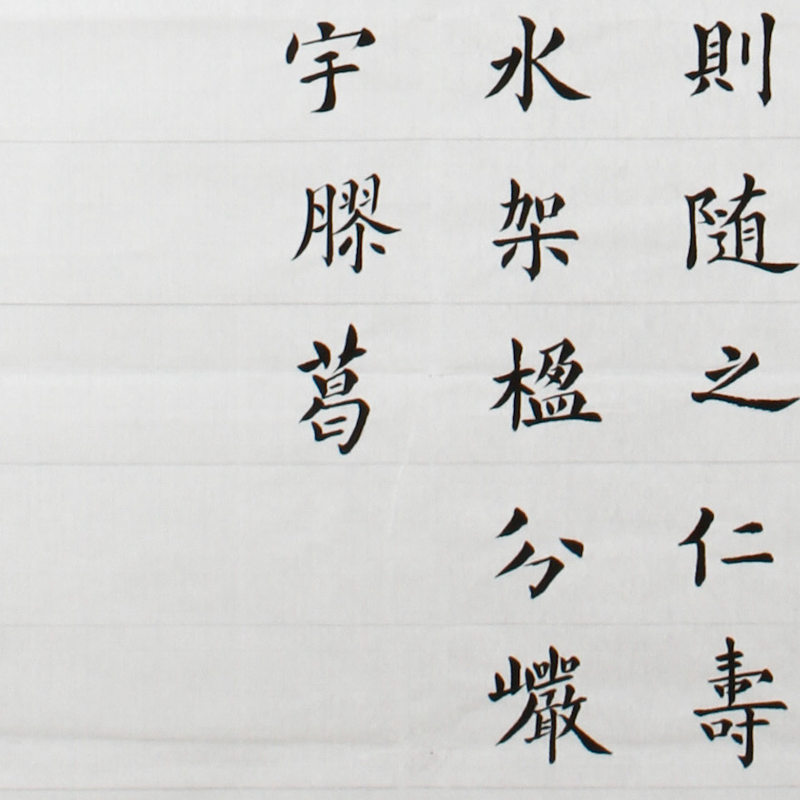 則随之仁壽
水架楹分巗
宇膠葛